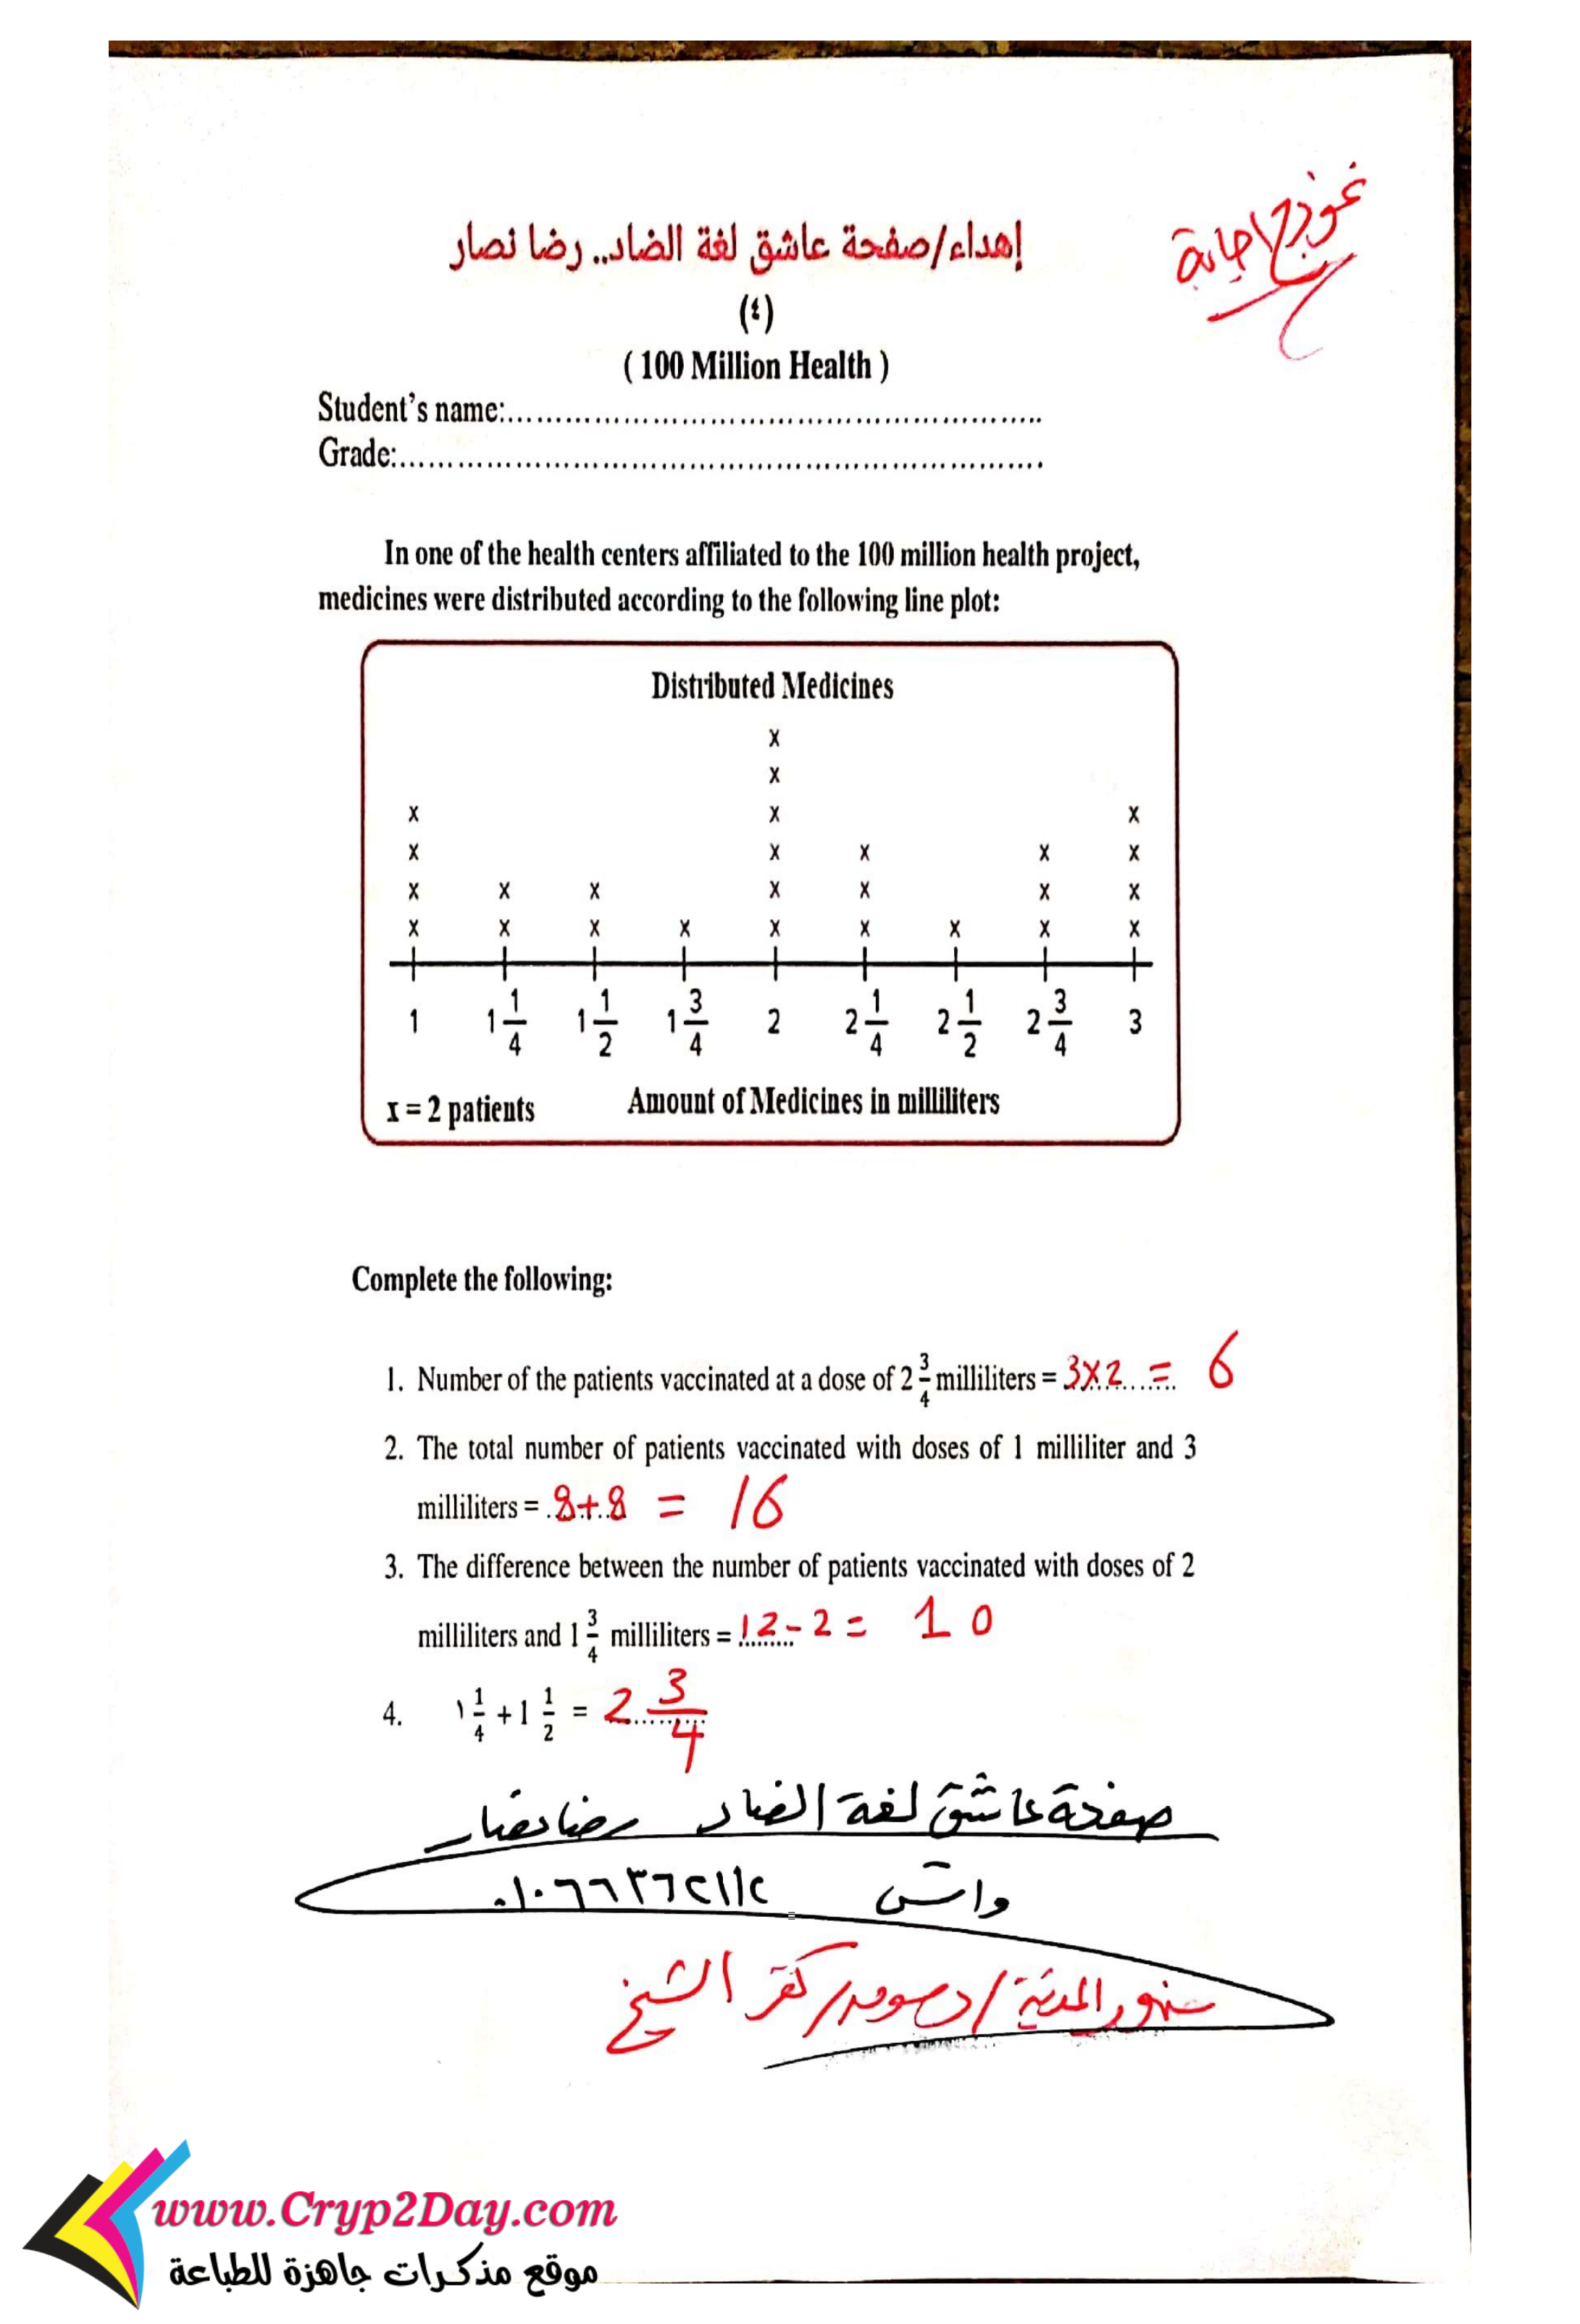 نموذج إجابة
إهداء/صفحة عاشق لغة الضاد.. رضا نصار
(٤)
( 100 Million Health )
Student's name:...........................................................
Grade:.......................................................................
In one of the health centers affiliated to the 100 million health project,
medicines were distributed according to the following line plot:
Distributed Medicines
x
x
x x x
x x x x x
x x x x x x x
x x x x x x x x x
1 1 1/4 1 1/2 1 3/4 2 2 1/4 2 1/2 2 3/4 3
x = 2 patients Amount of Medicines in milliliters
Complete the following:
1. Number of the patients vaccinated at a dose of 2 3/4 milliliters = 3x2 = 6
2. The total number of patients vaccinated with doses of 1 milliliter and 3
milliliters = 8+8 = 16
3. The difference between the number of patients vaccinated with doses of 2
milliliters and 1 3/4 milliliters = 12-2 = 10
4. ١ 1/4 + 1 1/2 = 2 3/4
صفحة عاشق لغة الضاد رضا نصار
واتس ٠١٠٦٦٣٦٢١١٢
سنهور المدينة / دسوق / كفر الشيخ
www.Cryp2Day.com
موقع مذكرات جاهزة للطباعة